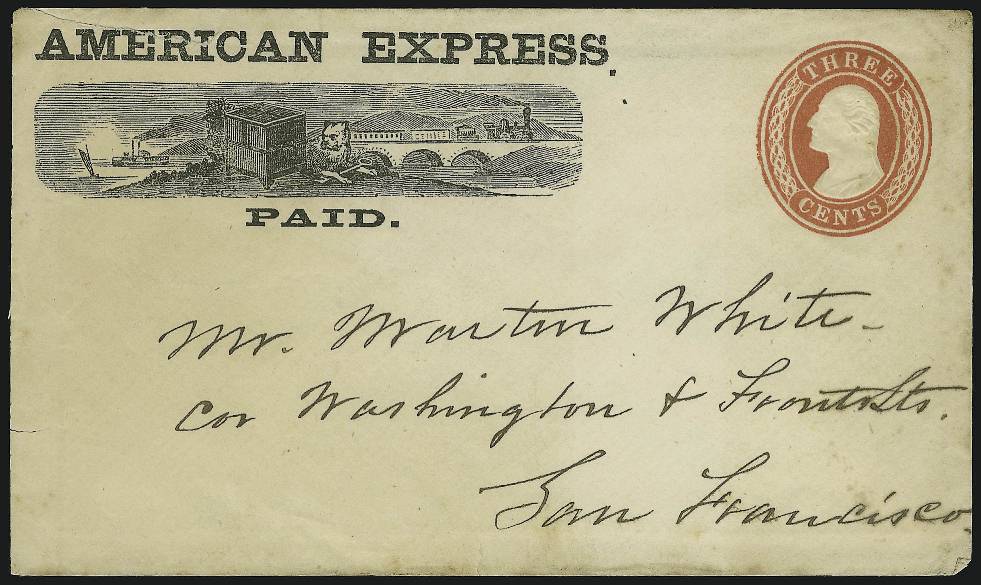 AMERICAN EXPRESS.
PAID.
THREE
CENTS
Mr. Martin White
cor Washington & Front Sts.
San Francisco.